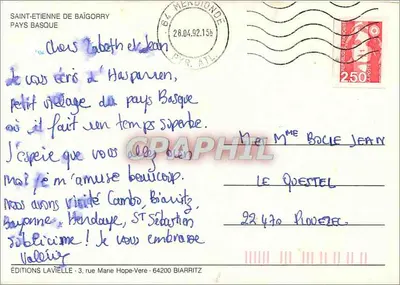 SAINT-ETIENNE DE BAÏGORRY
PAYS BASQUE
64 MENDIONDE
28.04.92.15H
PYR. ATL.
2,50
Chers Zabeth et Jean
Je vous écris d'Hasparren,
petit village du pays Basque
où il fait un temps superbe.
J'espère que vous allez bien
Moi je m'amuse beaucoup.
Nous avons visité Cambo, Biarritz,
Bayonne, Hendaye, ST Sébastien
Sublicisme ! Je vous embrasse
Valérie
Mr et Mme BOLLE JEAN
LE QUESTEL
22470 PLOUEZEC
CRAPHIL
EDITIONS LAVIELLE - 3, rue Marie Hope-Vere - 64200 BIARRITZ